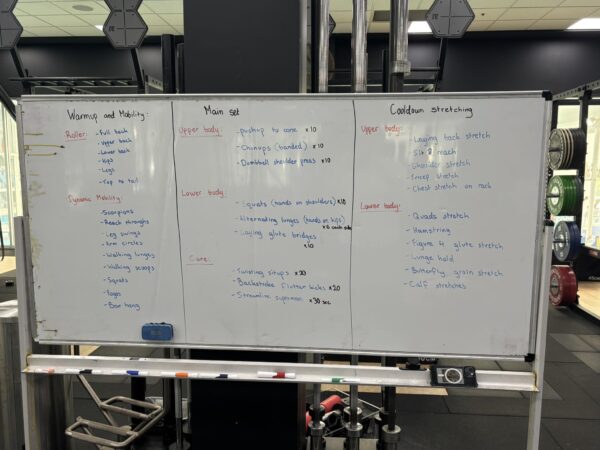 Warmup and Mobility:
Roller:
- Full back
- Upper back
- Lower back
- Hips
- Legs
- Top to tail
Dynamic Mobility:
- Scorpions
- Reach throughs
- Leg swings
- Arm circles
- Walking lunges
- Walking scoops
- Squats
- Pogos
- Bar hang
Main set
Upper body:
- pushup to cone x10
- Chinups (banded) x10
- Dumbbell shoulder press x10
Lower body:
- Squats (hands on shoulders) x10
- Alternating lunges (hands on hips) x6 each side
- Laying glute bridges x10
Core:
- Twisting situps x20
- Backstroke flutter kicks x20
- Streamline superman x30 sec
Cooldown stretching
Upper body:
- Laying back stretch
- Sit & reach
- Shoulder stretch
- Tricep stretch
- Chest stretch on rack
Lower body:
- Quads stretch
- Hamstring
- Figure 4 glute stretch
- Lunge hold
- Butterfly groin stretch
- Calf stretches